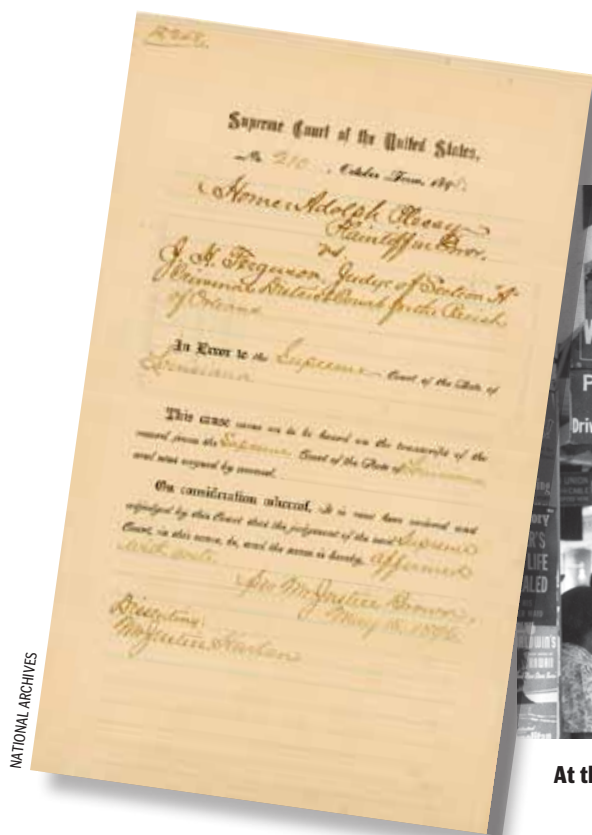 Supreme Court of the United States,
No. 210, October Term, 1895.
Homer Adolph Plessy
Plaintiff in Error,
vs
J. H. Ferguson, Judge of Section "A"
Criminal District Court for the Parish
of Orleans
In Error to the Supreme Court of the State of
Louisiana
This cause came on to be heard on the transcript of the
record from the Supreme Court of the State of Louisiana
and was argued by counsel.
On consideration whereof, It is now here ordered and
adjudged by this Court that the judgment of the said Supreme
Court, in this cause, be, and the same is hereby, affirmed
with costs.
per Mr. Justice Brown,
May 18, 1896.
Dissenting:
Mr. Justice Harlan
NATIONAL ARCHIVES
Driv
UNION
ory
R'S
LIFE
ALED
LDWIN'S
At th